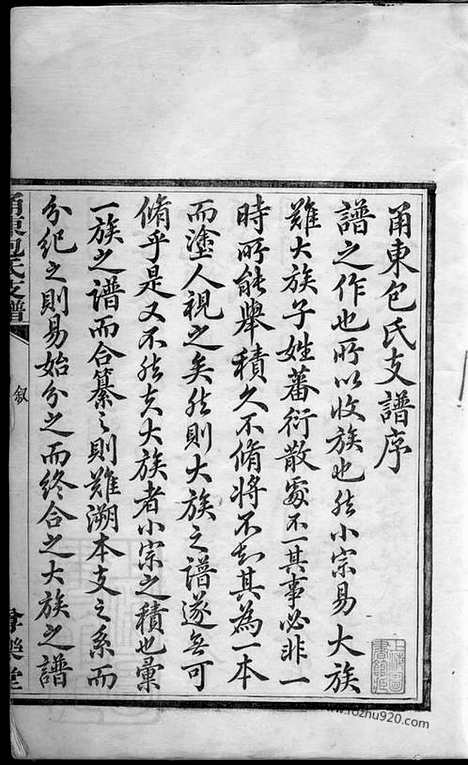 甬東包氏支譜序
譜之作也所以收族也然小宗易大族
難大族子姓蕃衍散處不一其事必非一
時所能舉積久不脩將不知其為一本
而塗人視之矣然則大族之譜遂無可
脩乎是又不然夫大族者小宗之積也彙
一族之譜而合纂之則難溯本支之系而
分紀之則易始分之而終合之大族之譜
甬東包氏支譜
敘
樂堂
www.rozhu920.com